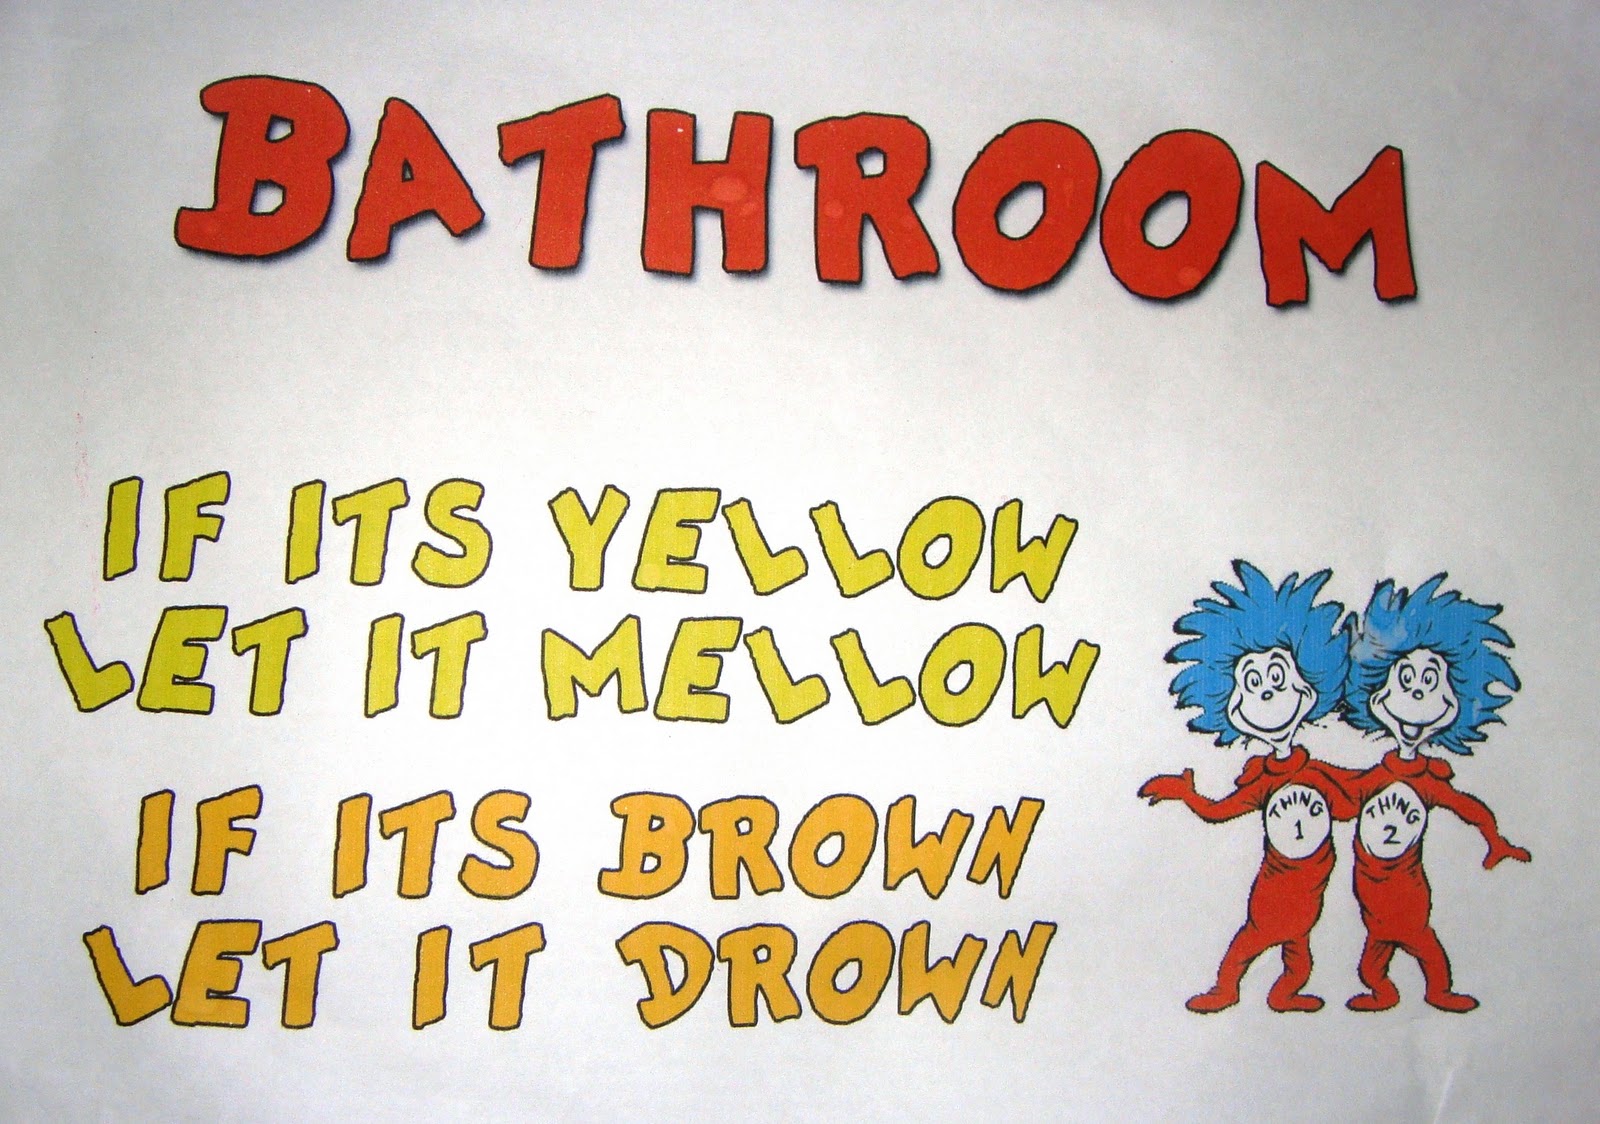 BATHROOM
IF ITS YELLOW
LET IT MELLOW
IF ITS BROWN
LET IT DROWN
THING
1
THING
2